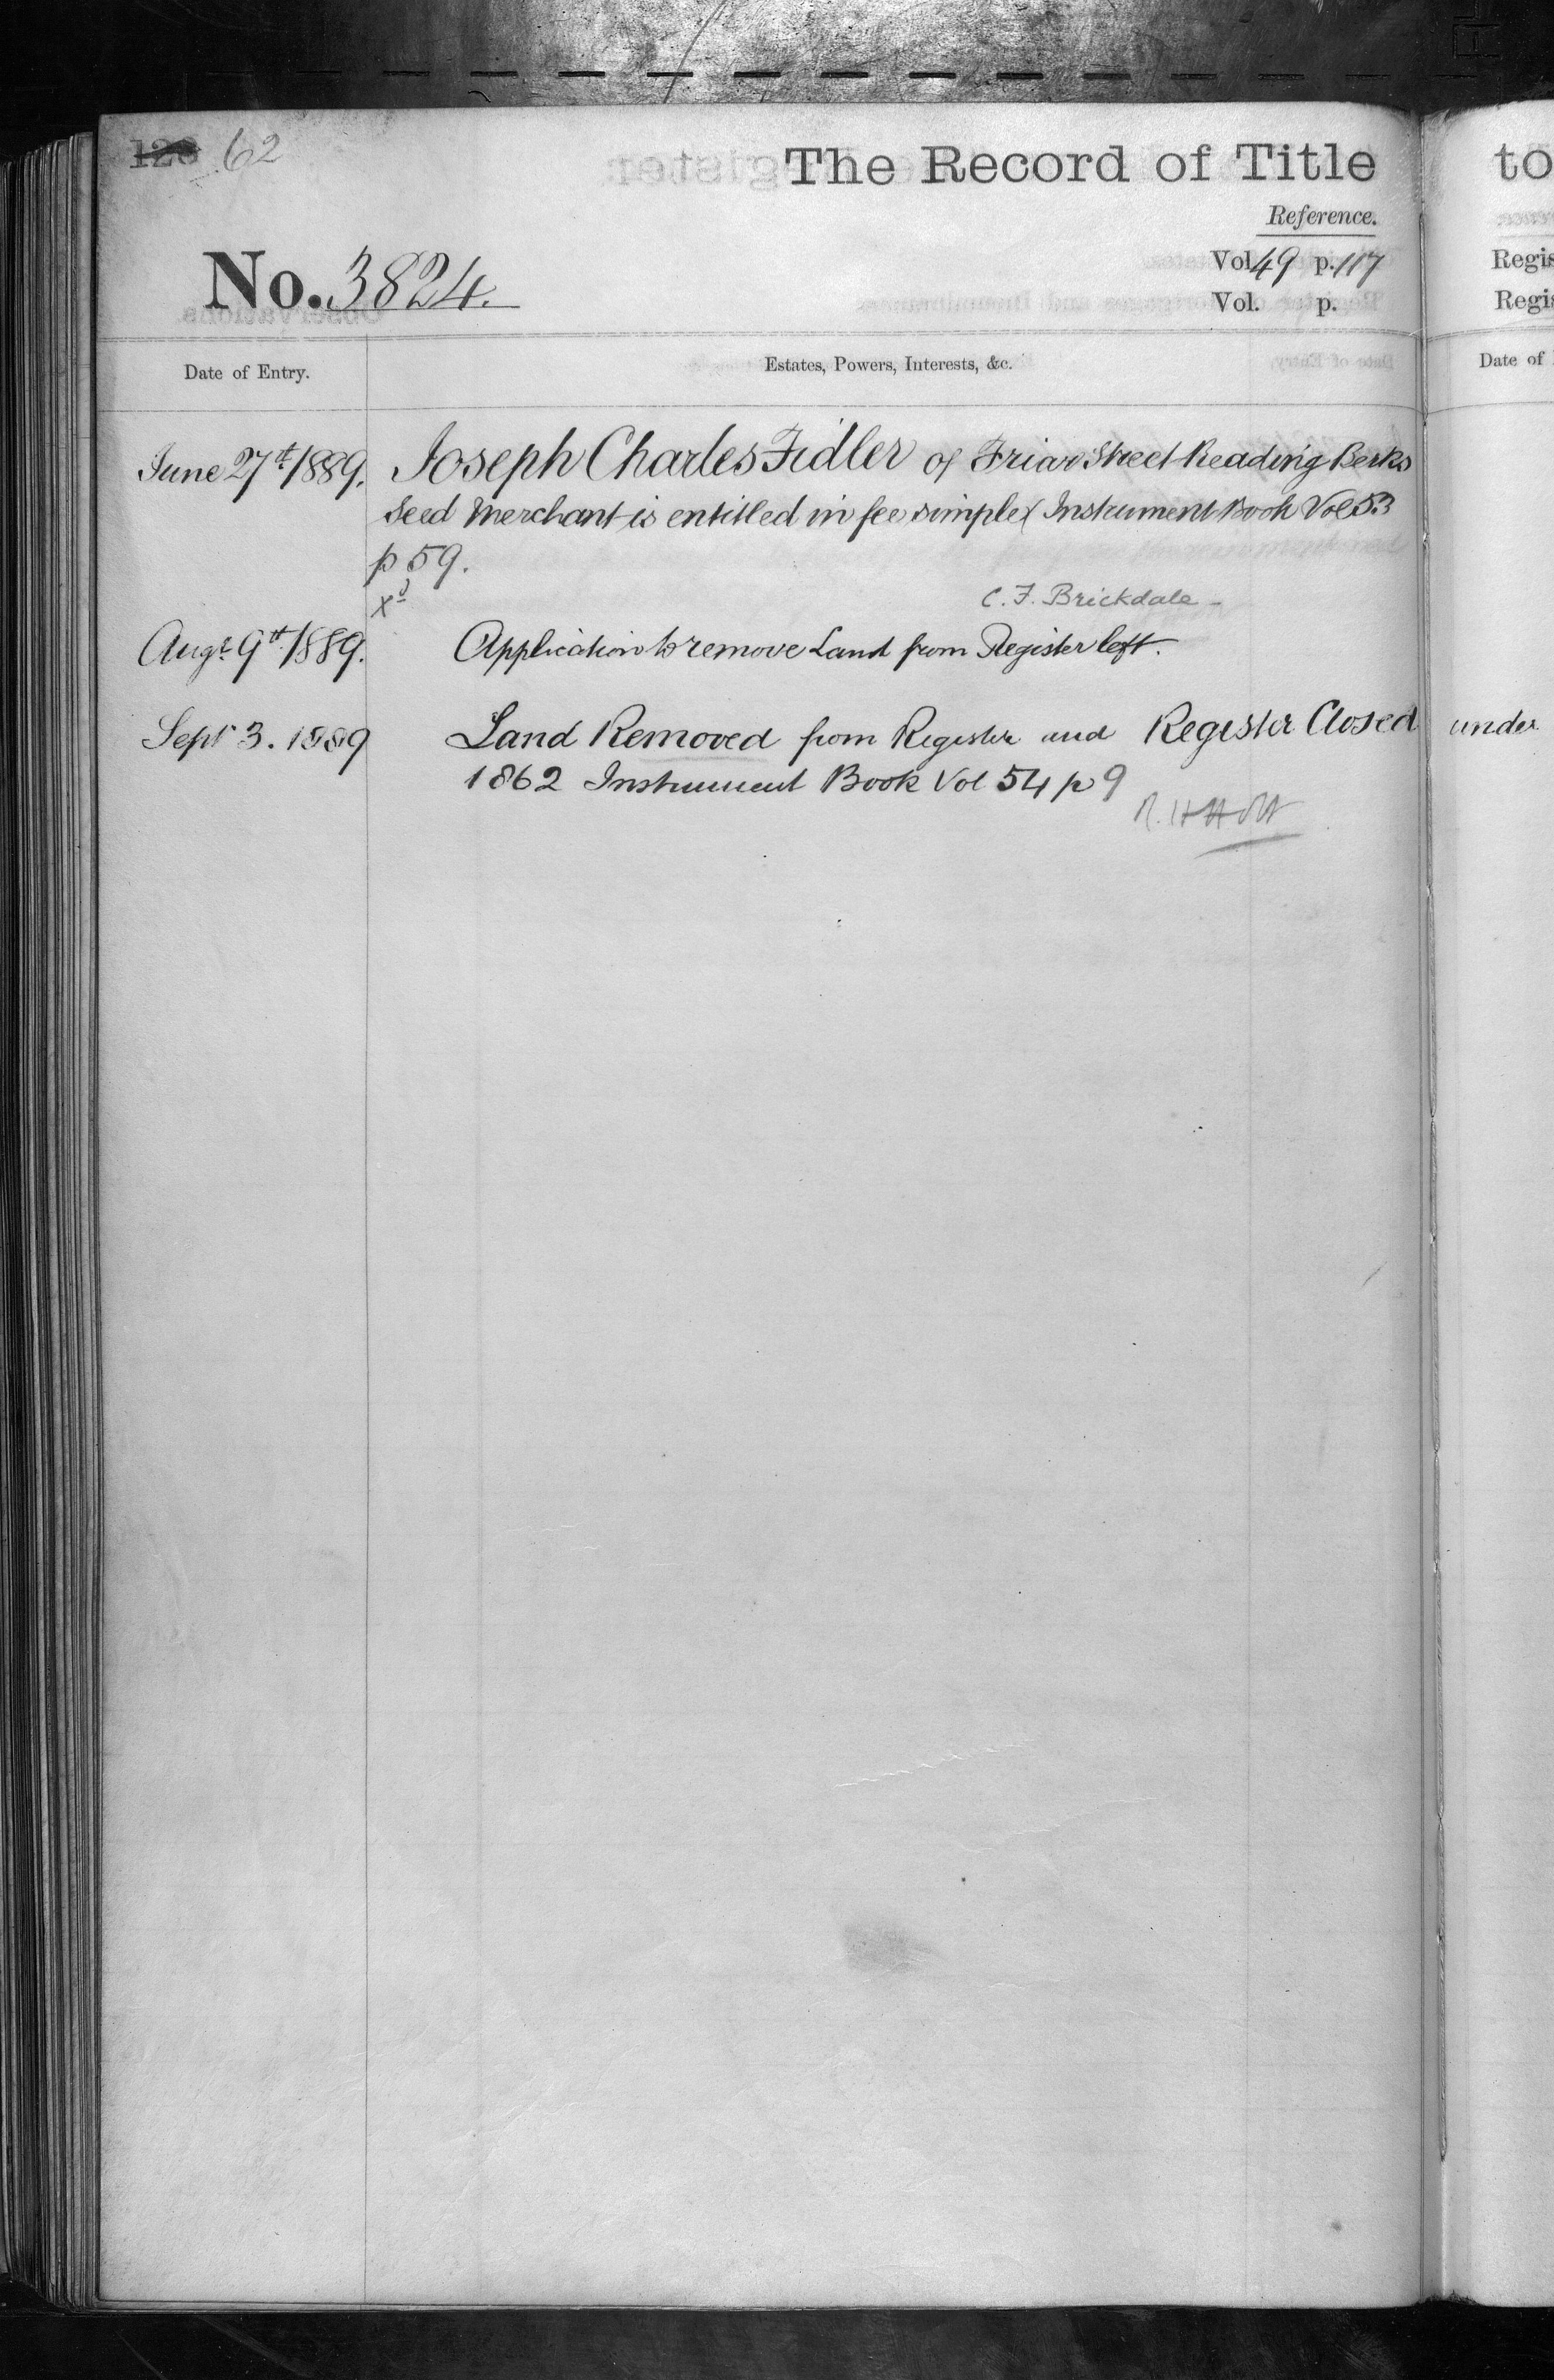 126 62
The Record of Title to
Reference.
No. 3824.
Vol. 49 p. 117 Regis
Vol. p. Regis
Date of Entry. Estates, Powers, Interests, &c. Date of
June 27th 1889. Joseph Charles Fidler of Friar Street Reading Berks
Seed Merchant is entitled in fee simple (Instrument Book Vol 53
p 59.
xd
C. F. Brickdale -
Augt 9th 1889. Application to remove Land from Register left.
Sept 3. 1889 Land Removed from Register and Register Closed under
1862 Instrument Book Vol 54 p 9